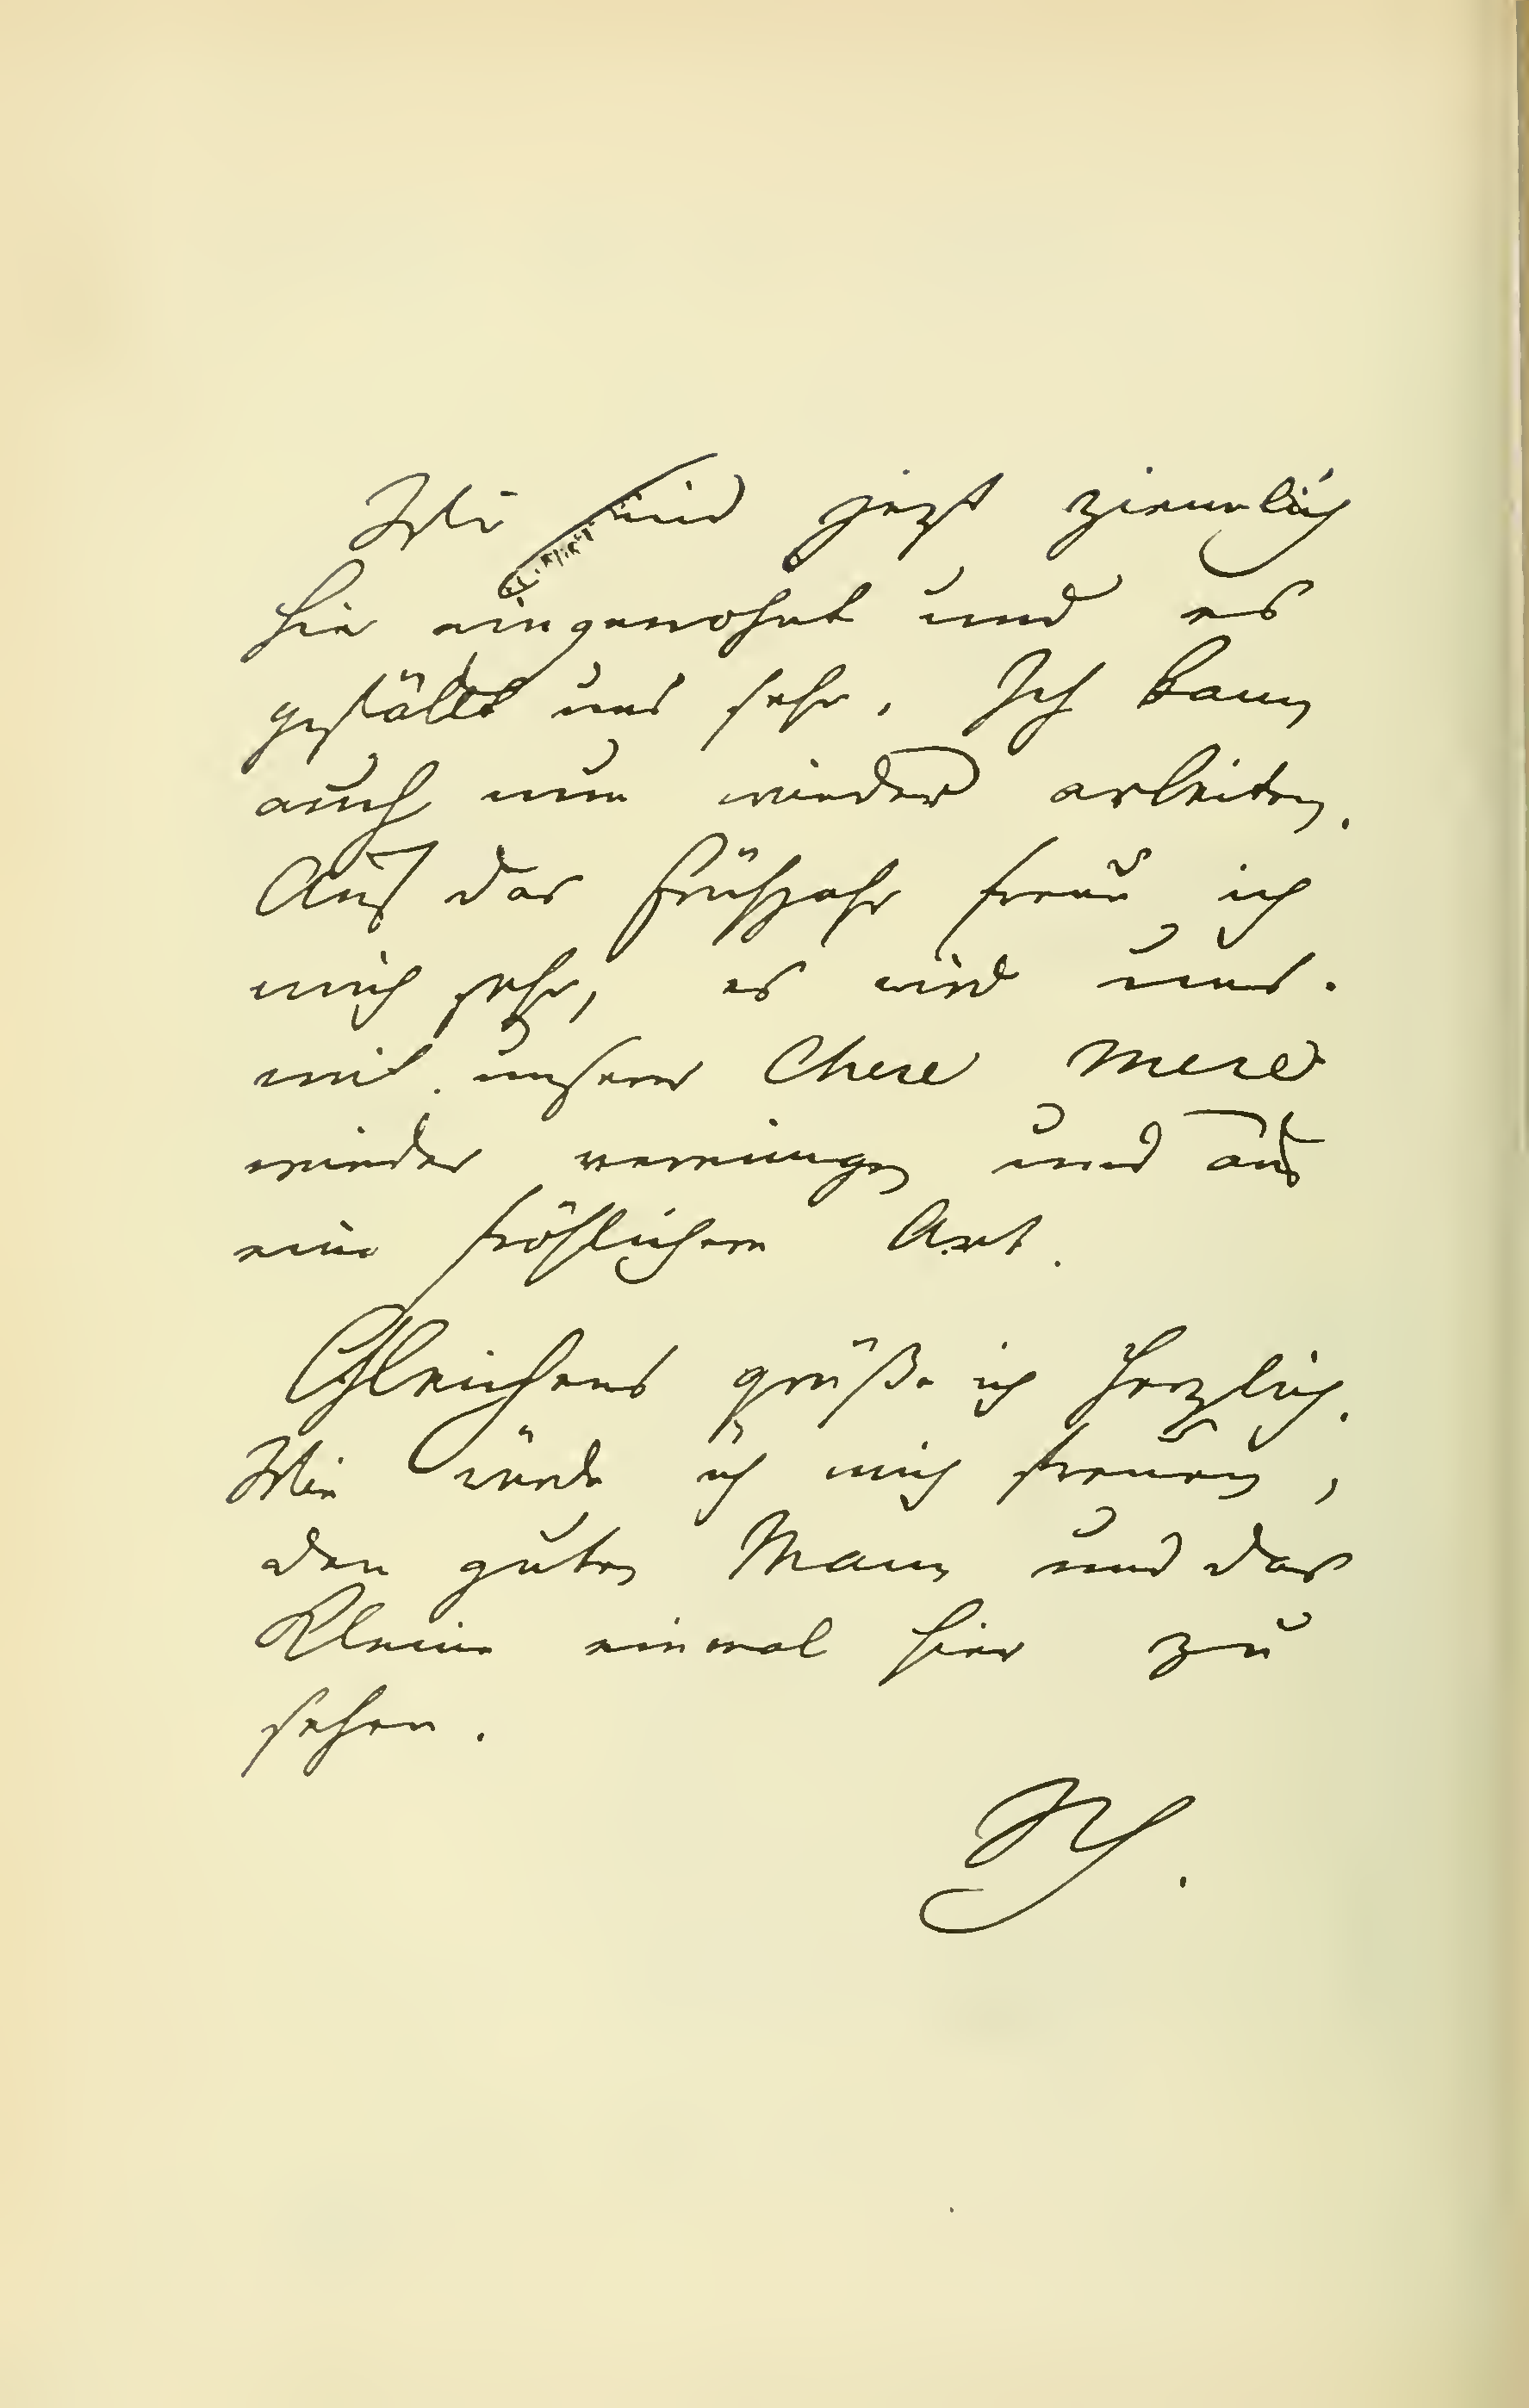 Wir sind jezt ziemlich
hier eingewohnt und es
gefällt uns sehr. Ich kann
auch nun wieder arbeiten.
Auf das Frühjahr freue ich
mich sehr, es wird uns
mit unserer Chere Mere
wieder vereinigen und auf
eine fröhlichere Art.
Gleichens grüße ich herzlich.
Wie würde ich mich freuen,
den guten Mann und das
Kleine einmal hier zu
sehen.